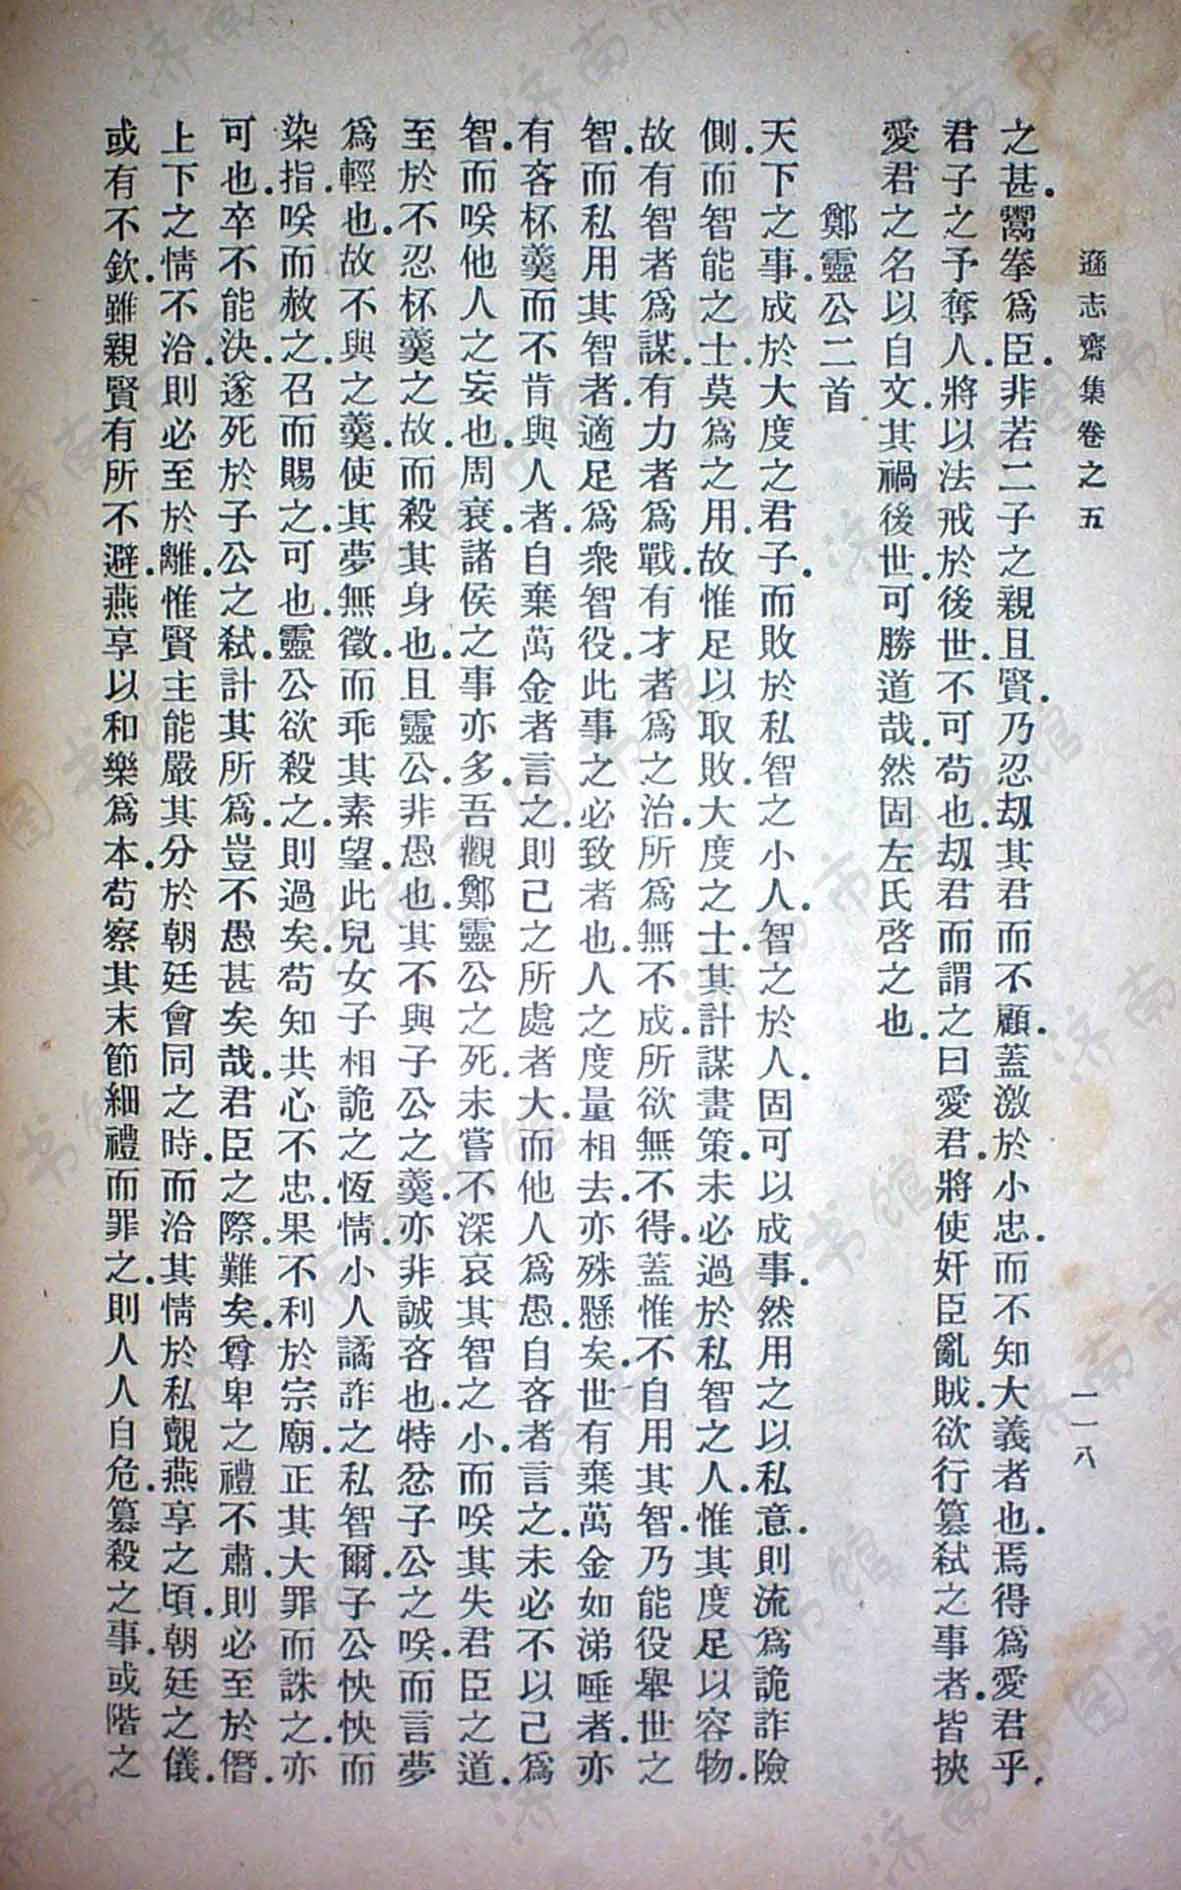 遜志齋集卷之五
一一八
之甚.鬻拳爲臣.非若二子之親且賢.乃忍刼其君而不顧.蓋激於小忠.而不知大義者也.焉得爲愛君乎.
君子之予奪人.將以法戒於後世.不可苟也.刼君而謂之曰愛君.將使奸臣亂賊.欲行篡弑之事者.皆挾
愛君之名以自文.其禍後世.可勝道哉.然固左氏啓之也.
鄭靈公二首
天下之事.成於大度之君子.而敗於私智之小人.智之於人.固可以成事.然用之以私意.則流爲詭詐險
側.而智能之士.莫爲之用.故惟足以取敗.大度之士.其計謀畫策.未必過於私智之人.惟其度足以容物.
故有智者爲謀.有力者爲戰.有才者爲之治.所爲無不成.所欲無不得.蓋惟不自用其智.乃能役舉世之
智.而私用其智者.適足爲衆智役.此事之必致者也.人之度量相去.亦殊懸矣.世有棄萬金如涕唾者.亦
有吝杯羹而不肯與人者.自棄萬金者言之.則己之所處者大.而他人爲愚.自吝者言之.未必不以己爲
智.而唉他人之妄也.周衰.諸侯之事亦多.吾觀鄭靈公之死.未嘗不深哀其智之小.而唉其失君臣之道.
至於不忍杯羹之故.而殺其身也.且靈公.非愚也.其不與子公之羹.亦非誠吝也.特忿子公之唉.而言夢
爲輕也.故不與之羹.使其夢無徵.而乖其素望.此兒女子相詭之恆情.小人譎詐之私智爾.子公怏怏而
染指.唉而赦之.召而賜之.可也.靈公欲殺之.則過矣.苟知共心不忠.果不利於宗廟.正其大罪而誅之.亦
可也.卒不能決.遂死於子公之弑.計其所爲.豈不愚甚矣哉.君臣之際.難矣.尊卑之禮不肅.則必至於僭.
上下之情不洽.則必至於離.惟賢主能嚴其分於朝廷會同之時.而洽其情於私覿燕享之頃.朝廷之儀.
或有不欽.雖親賢有所不避.燕享以和樂爲本.苟察其末節細禮而罪之.則人人自危.篡殺之事.或階之